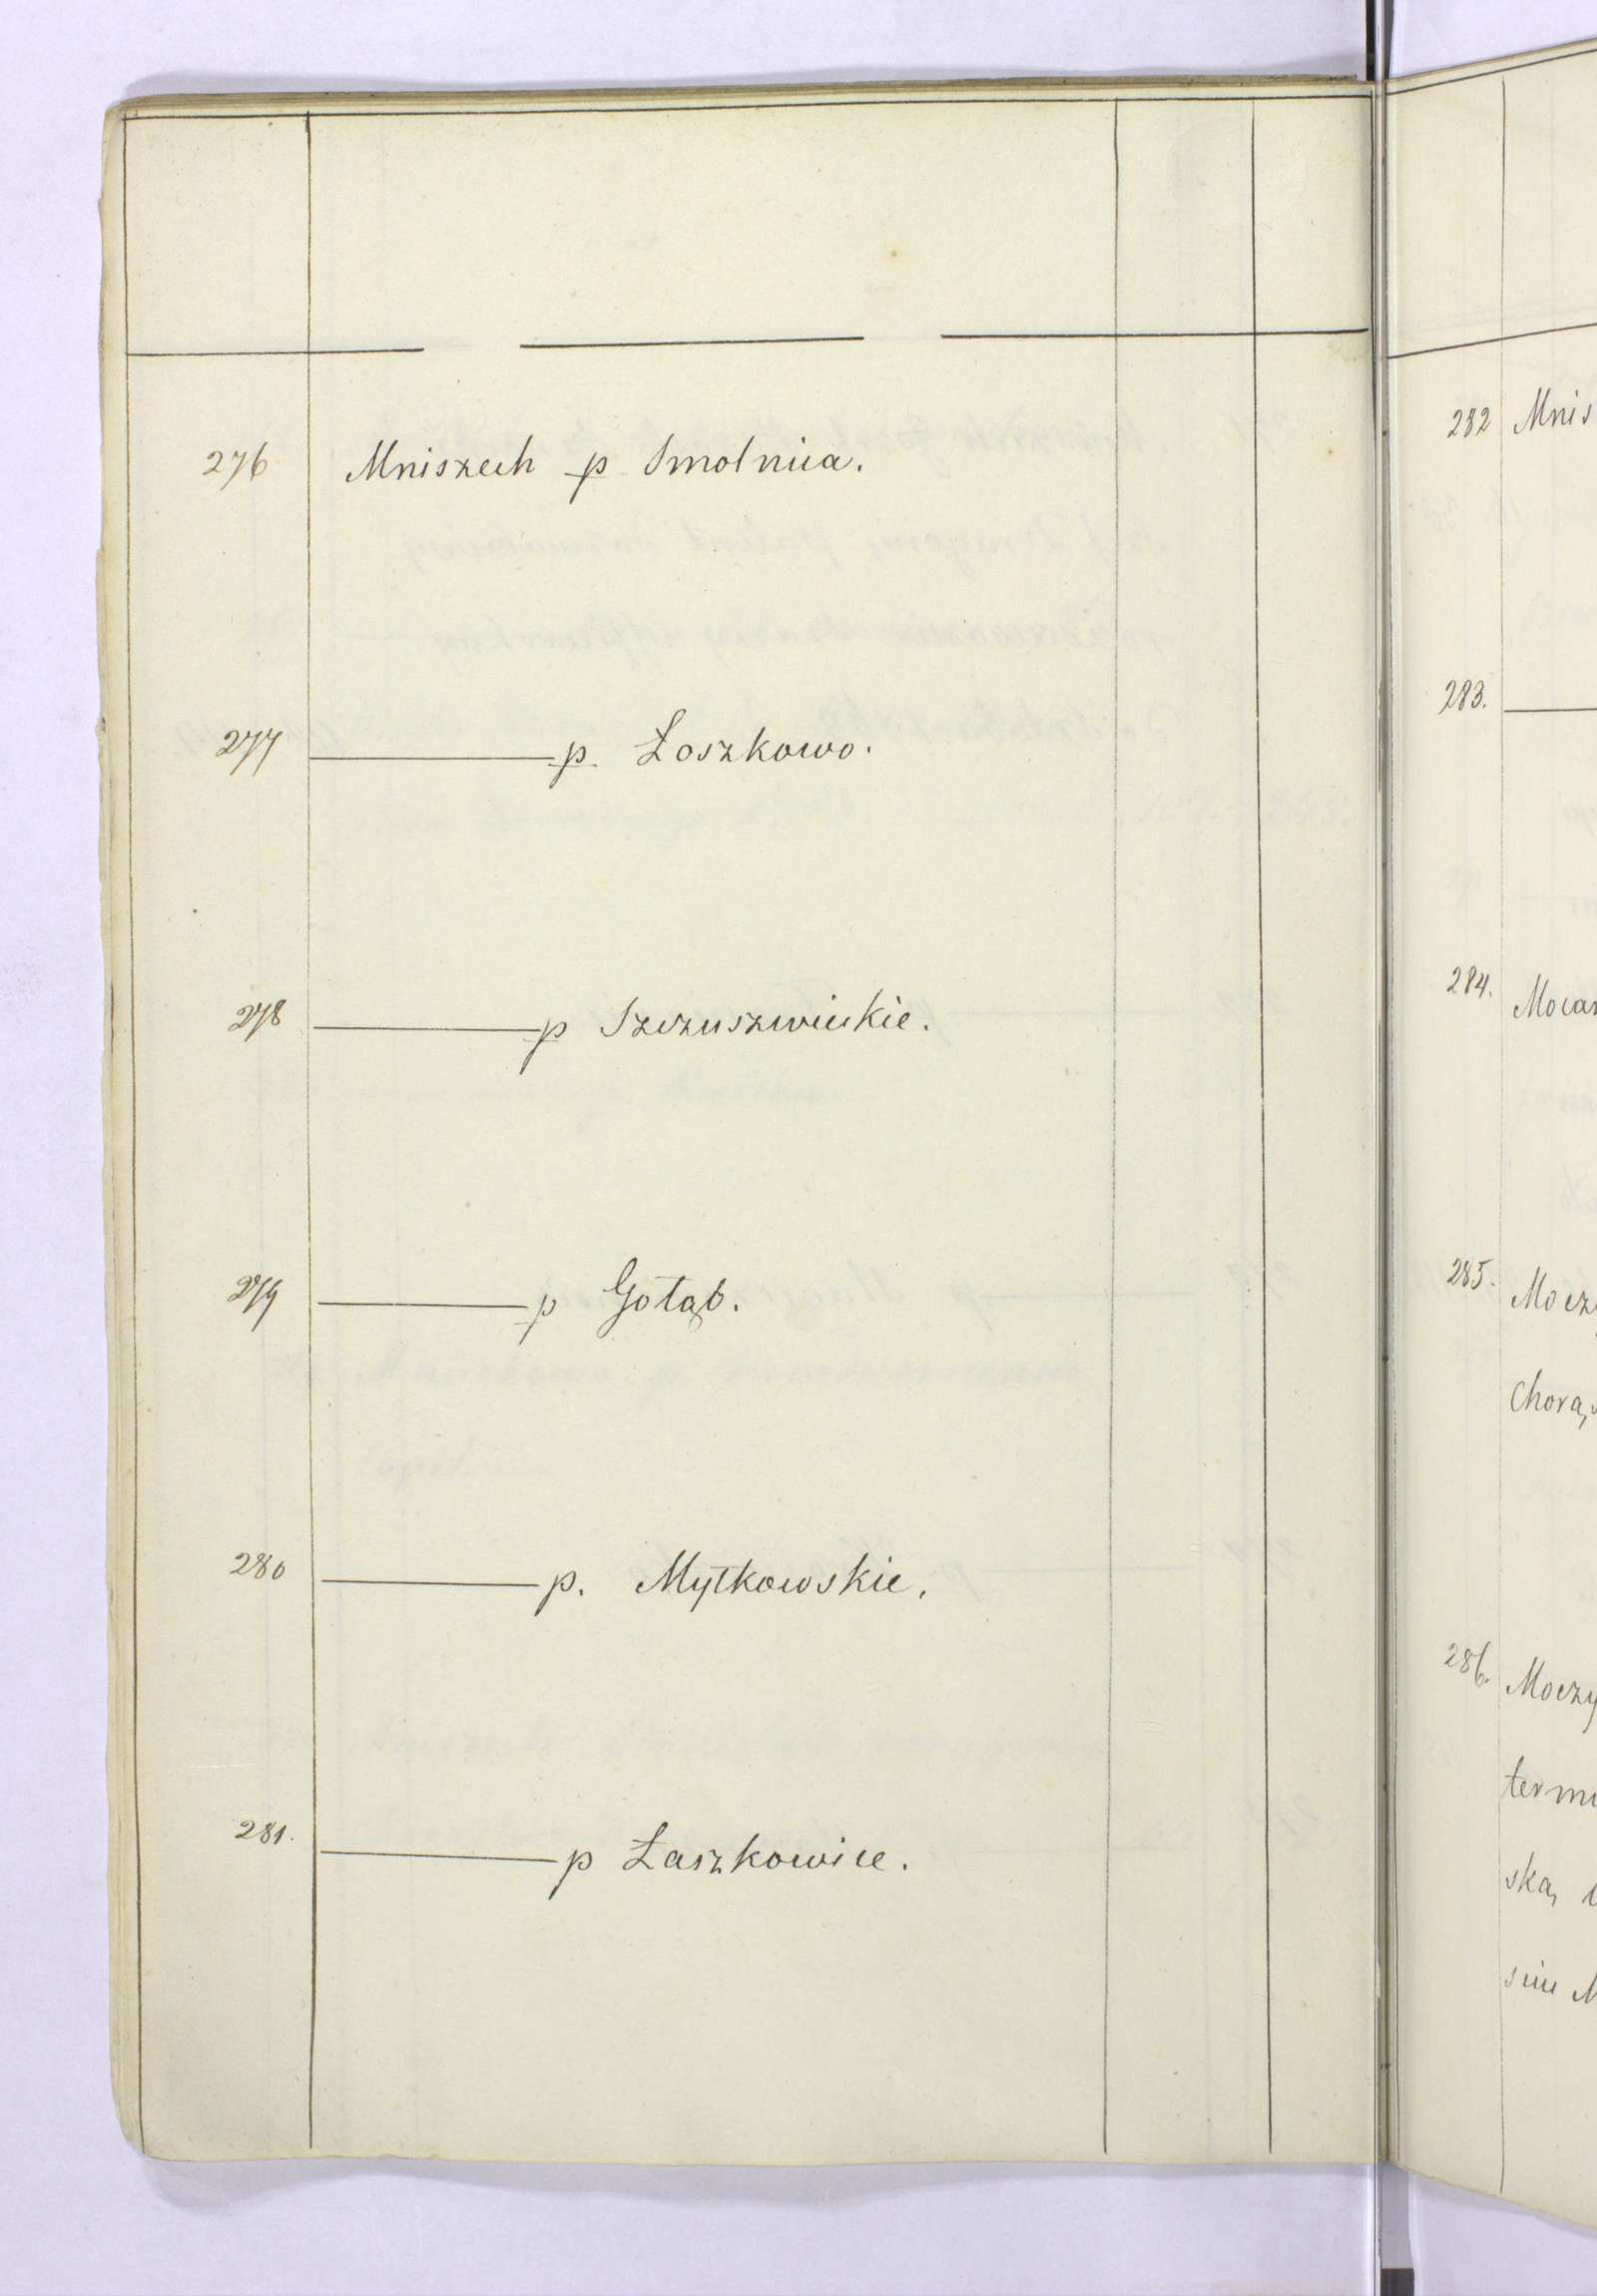 276 Mniszech p Smolnica.
277 ——— p. Łoszkowo.
278 ——— p Szczuszwickie.
279 ——— p Gołąb.
280 ——— p. Mytkowskie.
281. ——— p Łaszkowice.
282 Mnis
283. ———
284. Mocar
285. Moczy
Chorą
286. Moczy
term
ską